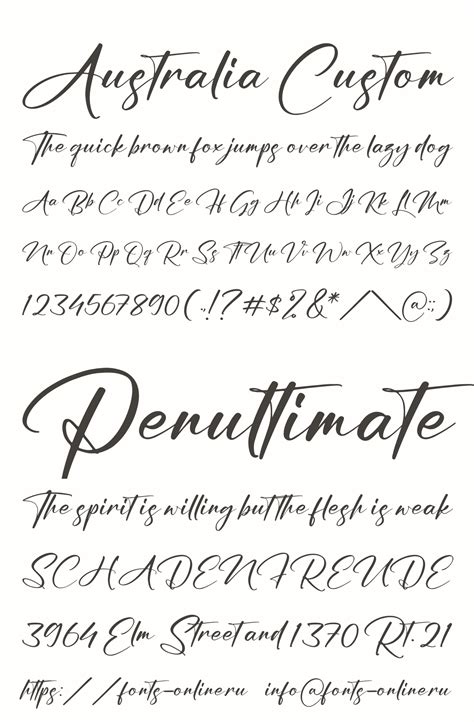 Australia Custom
The quick brown fox jumps over the lazy dog
Aa Bb Cc Dd Ee Ff Gg Hh Ii Jj Kk Ll Mm
Nn Oo Pp Qq Rr Ss Tt Uu Vv Ww Xx Yy Zz
1234567890(.,!?#$%&*/\@:;)
Penultimate
The spirit is willing but the flesh is weak
SCHADENFREUDE
3964 Elm Street and 1370 Rt. 21
https://fonts-online.ru info@fonts-online.ru